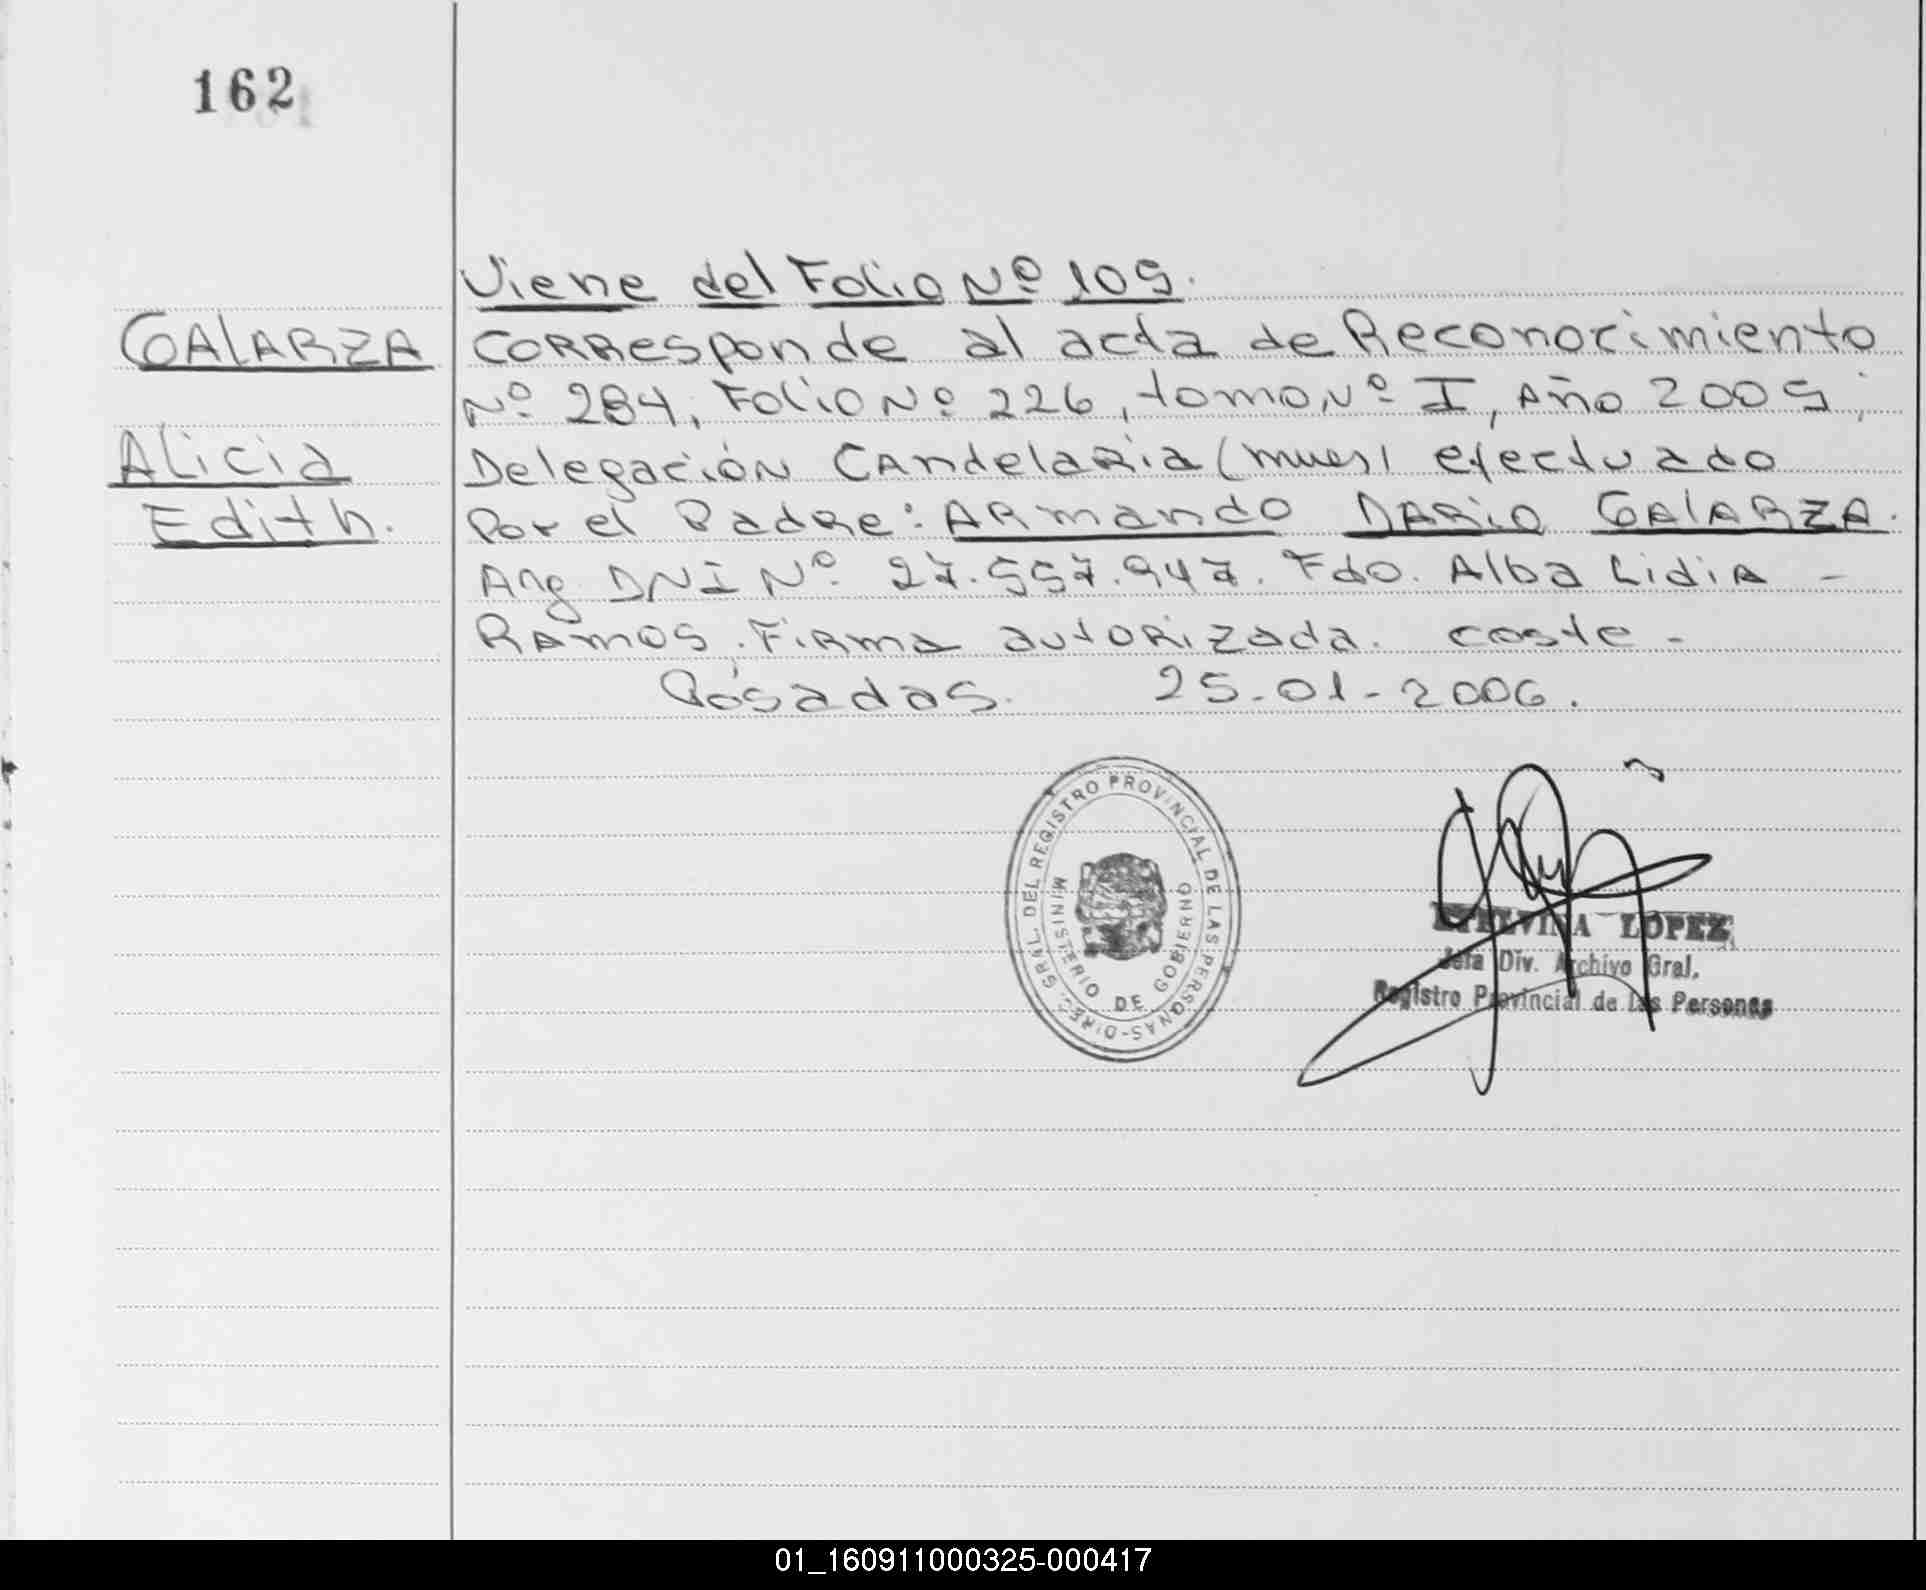 162
Viene del Folio Nº 109.
GALARZA
Corresponde al acta de Reconocimiento
Nº 284, Folio Nº 226, tomo Nº I, Año 2005;
Alicia
Delegación Candelaria (mnes) efectuado
Edith.
Por el Padre: Armando DARio GALARZA.
Arg DNI Nº 27.557.947. Fdo. Alba Lidia -
Ramos. Firma autorizada. coste -
Posadas. 25-01-2006.
DIREC. GRAL. DEL REGISTRO PROVINCIAL DE LAS PERSONAS-
MINISTERIO DE GOBIERNO
ETELVINA LOPEZ
Jefa Div. Archivo Gral.
Registro Provincial de las Personas
01_160911000325-000417